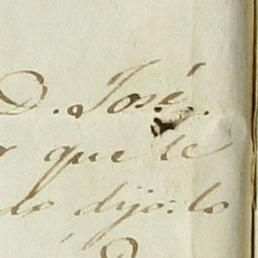 D. José
que le
do dijo: lo